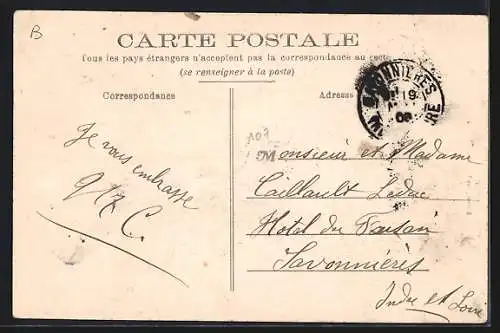 B
CARTE POSTALE
Tous les pays étrangers n'acceptent pas la correspondance au recto
(se renseigner à la poste)
Correspondance
Adresse
SAVONNIÈRES
19
08
INDRE
107
Je vous embrasse
C.
Monsieur et Madame
Caillault Leduc
Hotel du Faisan
Savonnières
Indre et Loire